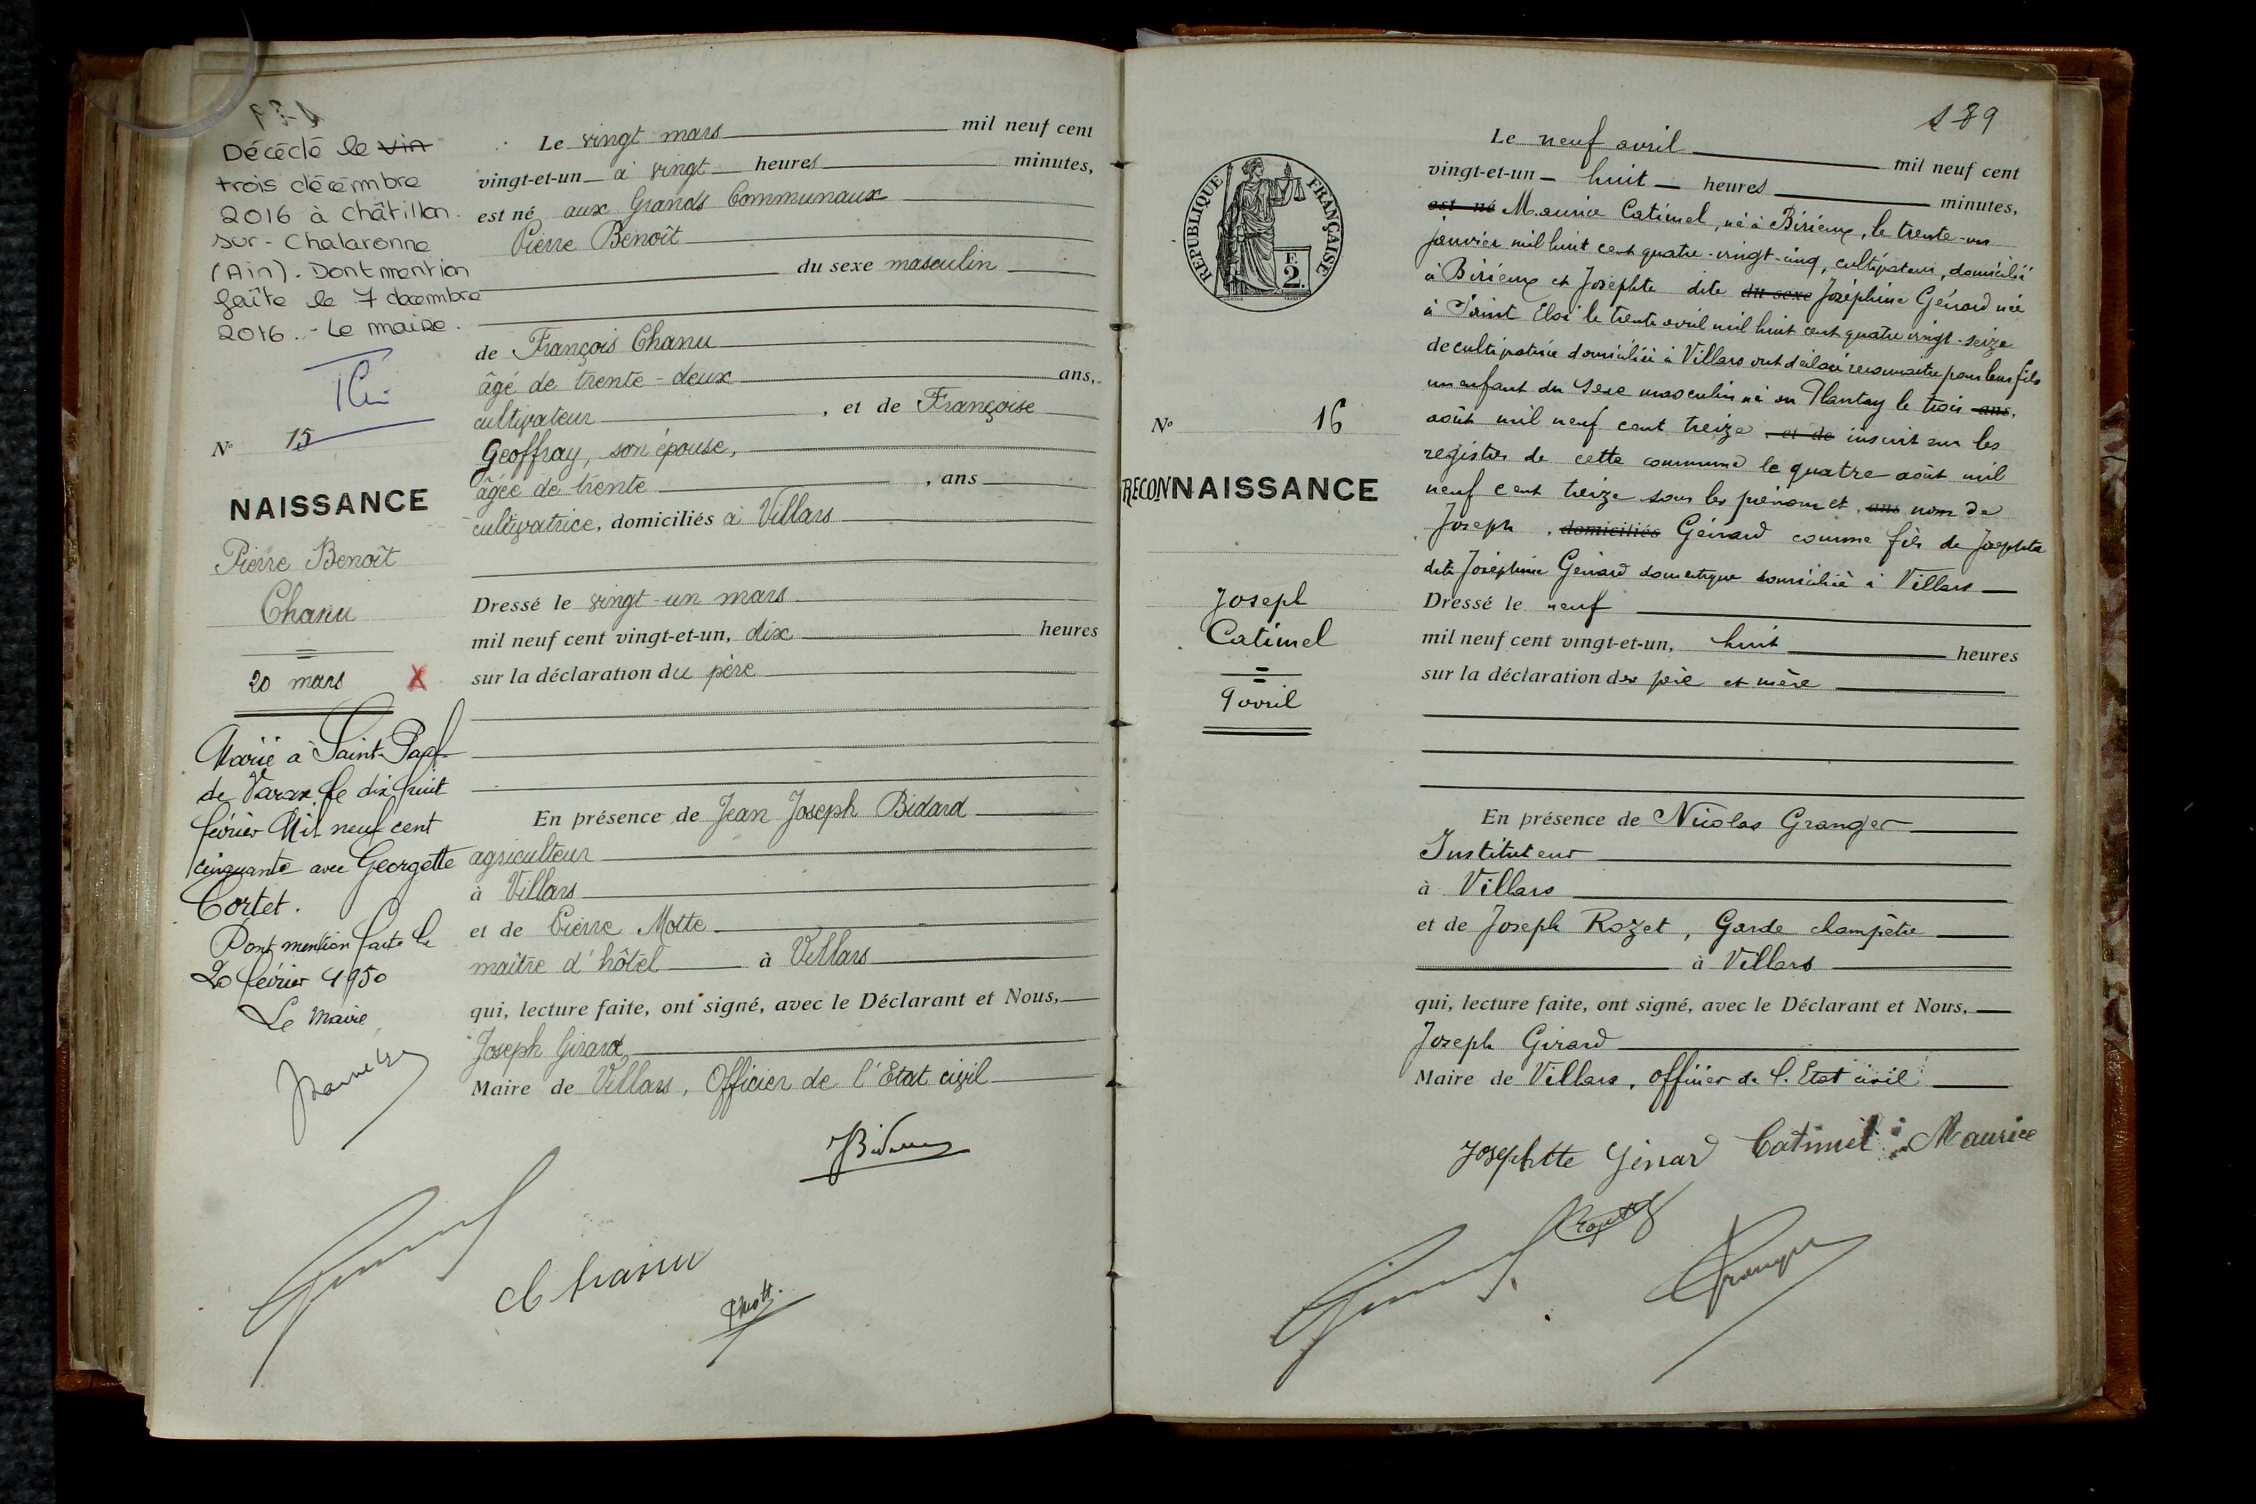 Décédé le vin
trois décembre
2016 à Châtillon
sur-Chalaronne
(Ain). Dont mention
faîte le 7 decembre
2016.- Le maire.
N° 15
NAISSANCE
Pierre Benoît
Chanu
20 mars X
Marié à Saint-Paul
de Varax le dix huit
février Mil neuf cent
cinquante avec Georgette
Cortet.
Dont mention faite le
20 février 1950
Le Maire
Le vingt mars mil neuf cent
vingt-et-un à vingt heures minutes,
est né aux Grands Communaux
Pierre Benoît
du sexe masculin
de François Chanu
âgé de trente-deux ans,
cultivateur, et de Françoise
Geoffray, son épouse,
âgée de trente, ans
cultivatrice, domiciliés à Villars
Dressé le vingt-un mars
mil neuf cent vingt-et-un, dix heures
sur la déclaration du père
En présence de Jean Joseph Bidard
agriculteur
à Villars
et de Pierre Motte
maître d'hôtel à Villars
qui, lecture faite, ont signé, avec le Déclarant et Nous,
Joseph Girard
Maire de Villars, Officier de l'Etat civil
Chanu
189
RÉPUBLIQUE FRANÇAISE
F.
2.
N° 16
RECONNAISSANCE
Joseph
Catimel
9 avril
Le neuf avril mil neuf cent
vingt-et-un huit heures minutes,
est né Maurice Catimel, né à Birieux, le trente-un
janvier mil huit cent quatre-vingt-cinq, cultivateur, domicilié
à Birieux et Josephte dite du sexe Joséphine Génard née
à Saint Eloi le trente avril mil huit cent quatre vingt-seize
de cultivatrice domiciliée à Villars ont déclaré reconnaître pour leur fils
un enfant du sexe masculin né au Plantay le trois ans,
août mil neuf cent treize, et de inscrit sur les
registres de cette commune le quatre août mil
neuf cent treize sous les prénom et, ans nom de
Joseph, domiciliés Génard comme fils de Josephte
dite Joséphine Génard domestique domiciliée à Villars
Dressé le neuf
mil neuf cent vingt-et-un, huit heures
sur la déclaration des père et mère
En présence de Nicolas Granger
Instituteur
à Villars
et de Joseph Rozet, Garde champêtre
à Villars
qui, lecture faite, ont signé, avec le Déclarant et Nous,
Joseph Girard
Maire de Villars, officier de l'Etat civil
Josephtte Génard Catimel Maurice